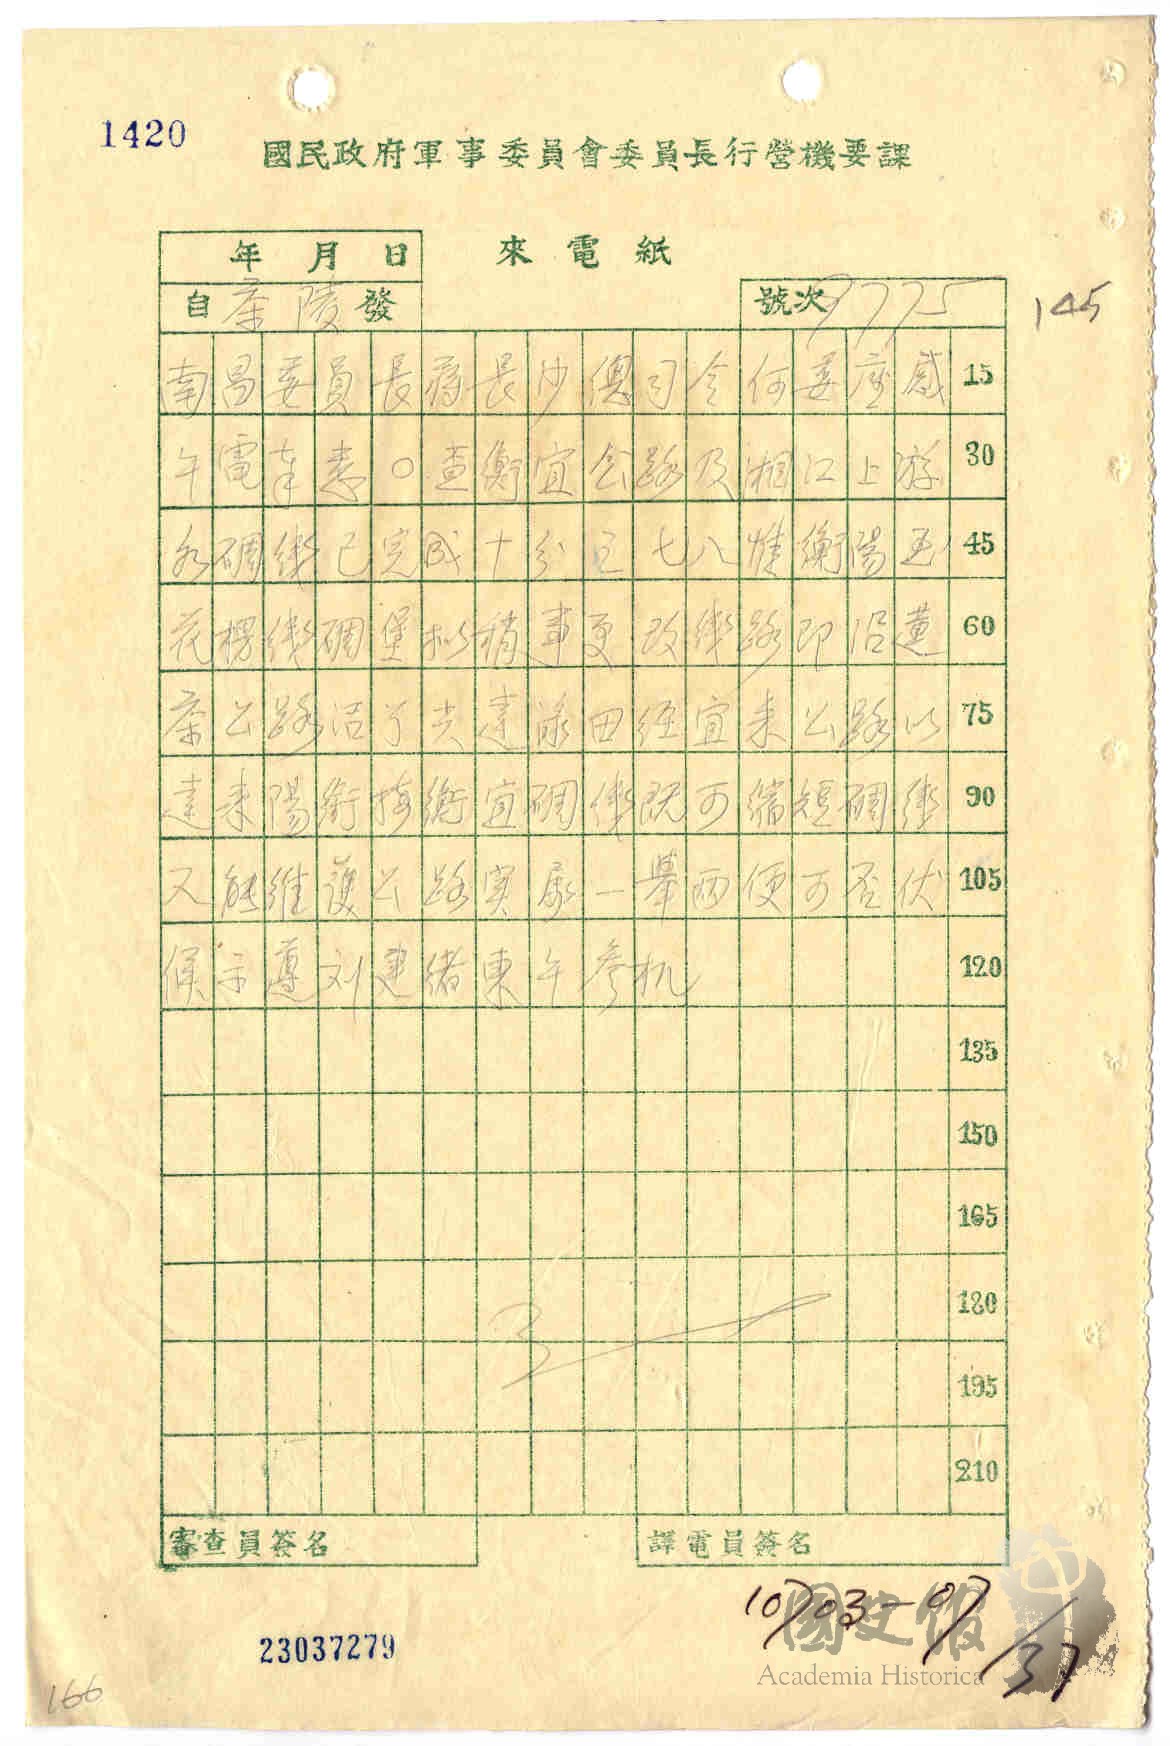 1420
國民政府軍事委員會委員長行營機要課
年 月 日
來電紙
自茶陵發
號次 9775
145
南昌委員長蔣長沙總司令何委座感 15
午電奉悉○查衡宜公路及湘江上游 30
各碉線已完成十分之七八惟衡陽至 45
花楞線碉堡擬稍事更改線路即沿蓮 60
茶公路 達 田經宜耒公路以 75
達耒陽銜接衡宜碉線既可縮短碉線 90
又能維護公路實屬一舉两便可否伏 105
候示遵刘建緒東午參机 120
135
150
165
180
195
210
審查員簽名
譯電員簽名
23037279
166
國史館
Academia Historica
37